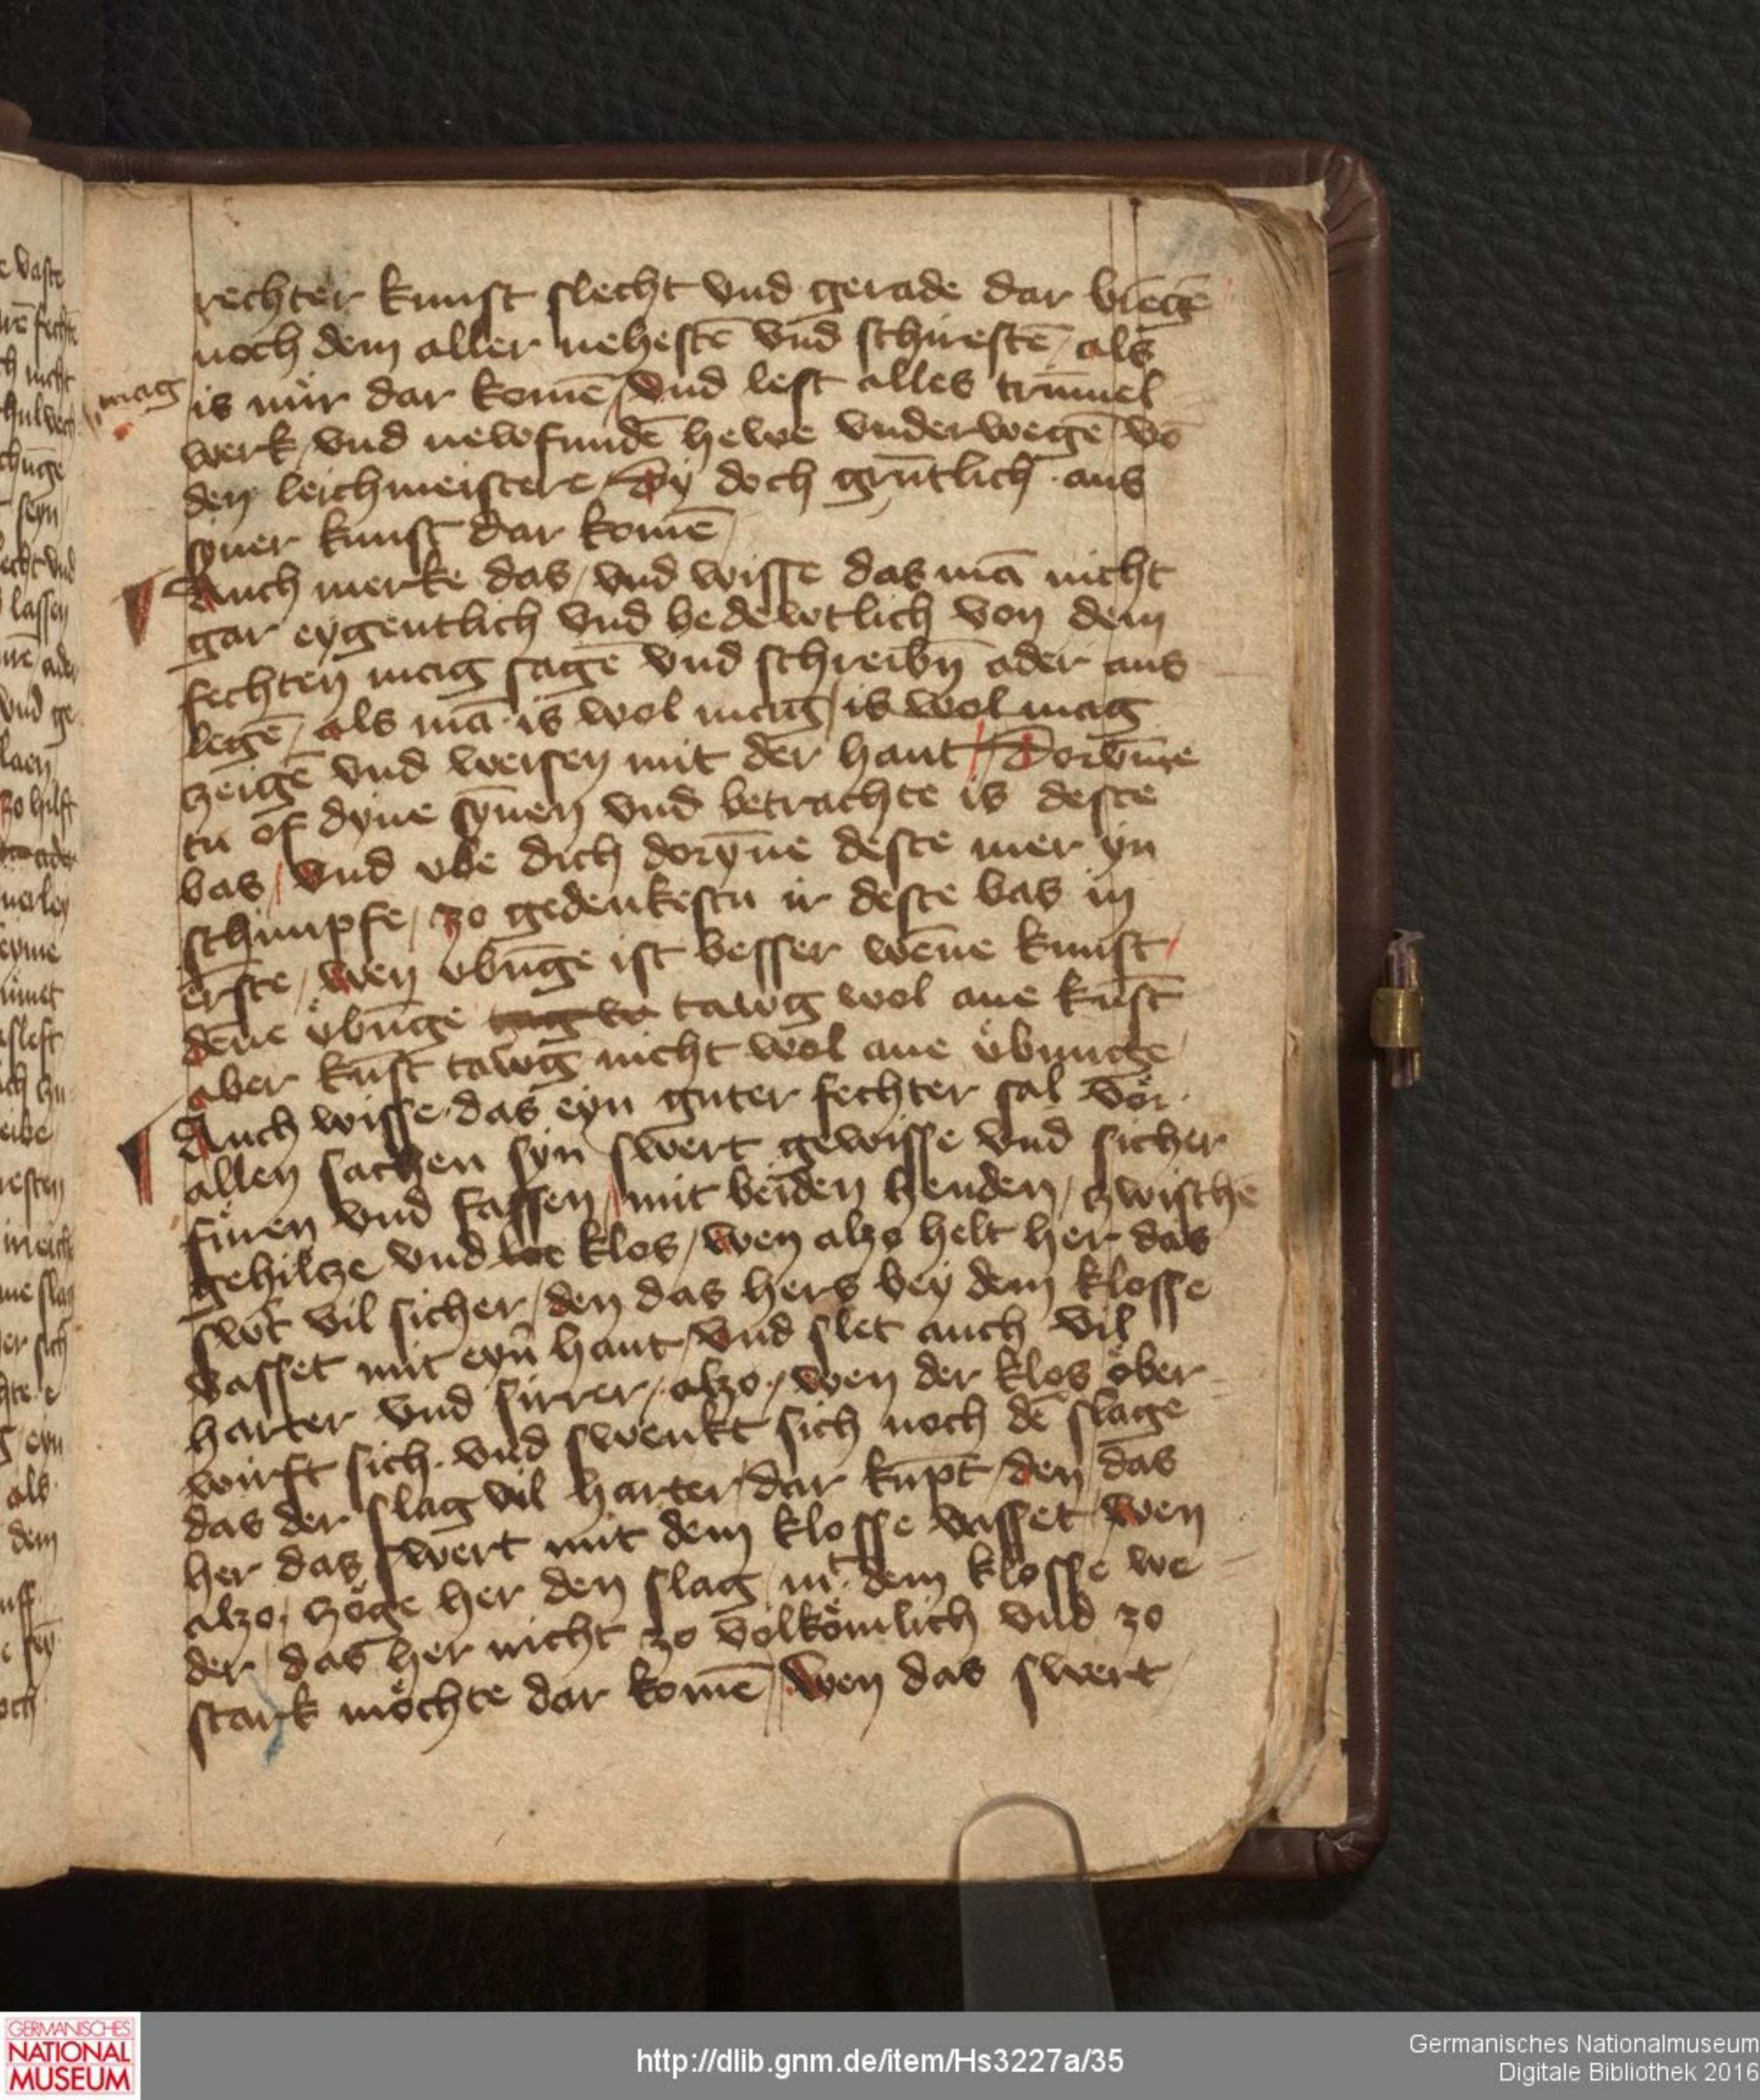 rechter kunst slecht vnd gerade dar bręgē
noch dem aller nehestē vnd schirestē / als
mag
is nur dar komē / vnd lest alles trūmel
werk / vnd newfundē hewe vnderwegē vō
den leichmeistere / dy doch grūtlich aus
syner kunst dar komē /
Auch merke das / vnd wisse das mā nicht
gar eygentlich vnd bedewtlich von dem
fechten mag sagē vnd schreibn̄ ader aus
legē / als mā is wol mag / is wol mag
czeigē vnd weisen mit der hant / Dorvm̄e
tu of dyne syn̄en vnd betrachte is deste
bas / vnd vbe dich doryn̄e deste mer yn
schimpfe / zo gedenkestu ir deste bas in
ern̄ste / wen vbūge ist besser wen̄e kunst /
den̄e übūge tawg wol ane kūst
aber kūst tawg nicht wol ane übunge /
Auch wisse das eyn guter fechter sal vör
allen sachen syn swert gewisse vnd sicher
füren vnd fassen / mit beiden henden / czwischē
gehilcze vnd klos / wen alzo helt her das
swert vil sicher / den das hers bey dem klosse
vasset mit eyn̄ hant / vnd slet auch vil
harter vnd sirrer / alzo / wen der klos öber
wirft sich vnd swenkt sich noch dē slage
das der slag vil harter / dar kūpt / den / das
her das swert mit dem klosse vasset / wen
alzo / czöge her den slag / mt dem klosse we
der / das her nicht zo völkömlich vnd zo
stark möchte dar komē / wen das swert /
GERMANISCHES
NATIONAL
MUSEUM
http://dlib.gnm.de/item/Hs3227a/35
Germanisches Nationalmuseum
Digitale Bibliothek 2016